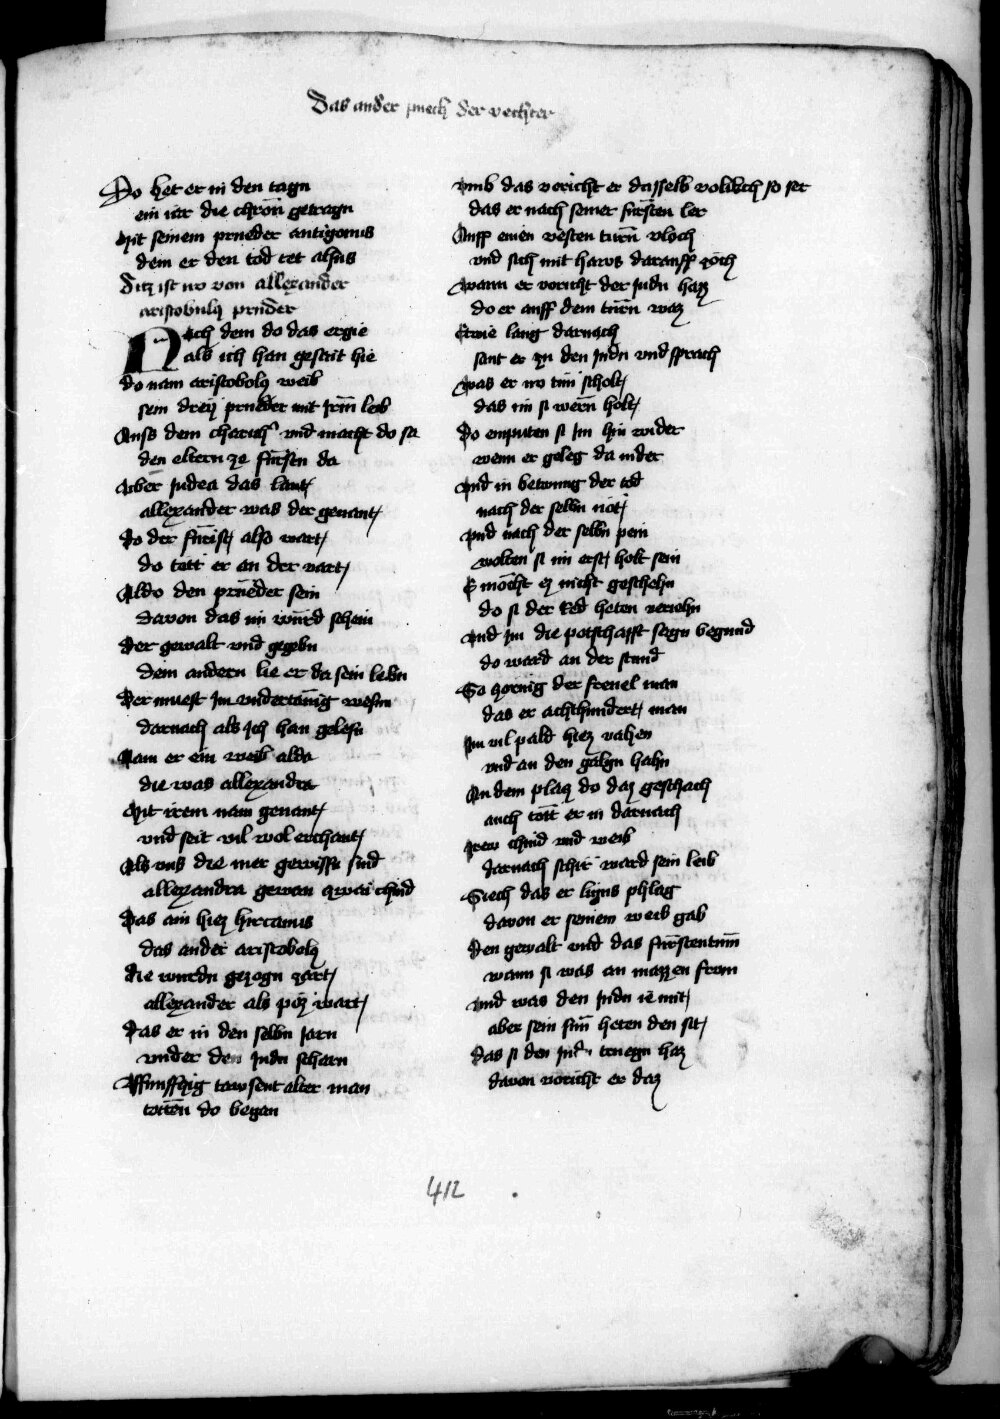 Das ander puech der vechter
Do het er in den tagn
ein iar die chron getragn
Mit seinem prueder antigonus
dem er den tod tet alsus
Ditz ist no von allexander
aristobulus prueder
Nach dem do das ergie
als ich han geseit hie
do nam aristobolus weib
sein dreÿ prueder mit irem leib
Auss dem charich und macht do sa
den eltern ze fürsten da
Uber Judea das lant
allexander was der genant
Do der fürist also wart
do tott er an der vart
Aldo den prueder sein
davon das im würd schein
Der gewalt und gegebn
dem andern lie er da sein lebn
Der muest im undertänig wesn
darnach als ich han gelesn
Nam er ein weib alda
die was allexandra
Mit irem nam genant
und seit vil wol erchant
Als uns die mer gewissn sind
allexandra gewan zwai chind
Das ain hiez hircanus
das ander aristobolus
die wurdn gezogn zart
allexander als poz wart
Das er in den selbn jarn
under den Judn scharn
Affunffzig tawsent alter man
totten do began
umb das voricht er dasselb volikch so ser
das er nach seiner fürsten ler
Auff einen vesten turn vloch
und sich mit haws darauff zoch
Wann er voricht der Judn haz
do er auff dem turn waz
Etwie lang darnach
sant er zu den Judn und sprach
Was er no tun scholt
das im si wern holt
Do enputen si im hin wider
wenn er geleg da nider
Und in betwung der tod
nach der selbn not
Und nach der selbn pein
wolten si im erst holt sein
E mocht ez nicht geschehn
do si der Red heten veriehn
Und im die potschafft sagn begund
do ward an der stund
So zornig der frevel man
das er achthundert man
Im vil pald hiez vahen
und an den galgn hahn
An dem placz do daz geschach
auch tott er in darnach
Irew chind und weib
darnach schir ward sein leib
Siech das er ligns phlag
davon er seinem weib gab
Den gewalt und das fürstentum
wann si was an mazzen frum
Und was den Judn ie mit
aber sein sun heten den sit
das si den Judn truegn haz
davon voricht er daz
412